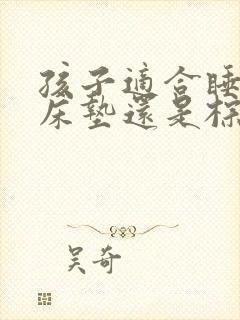 孩子適合睡
床墊還是棕
吳奇